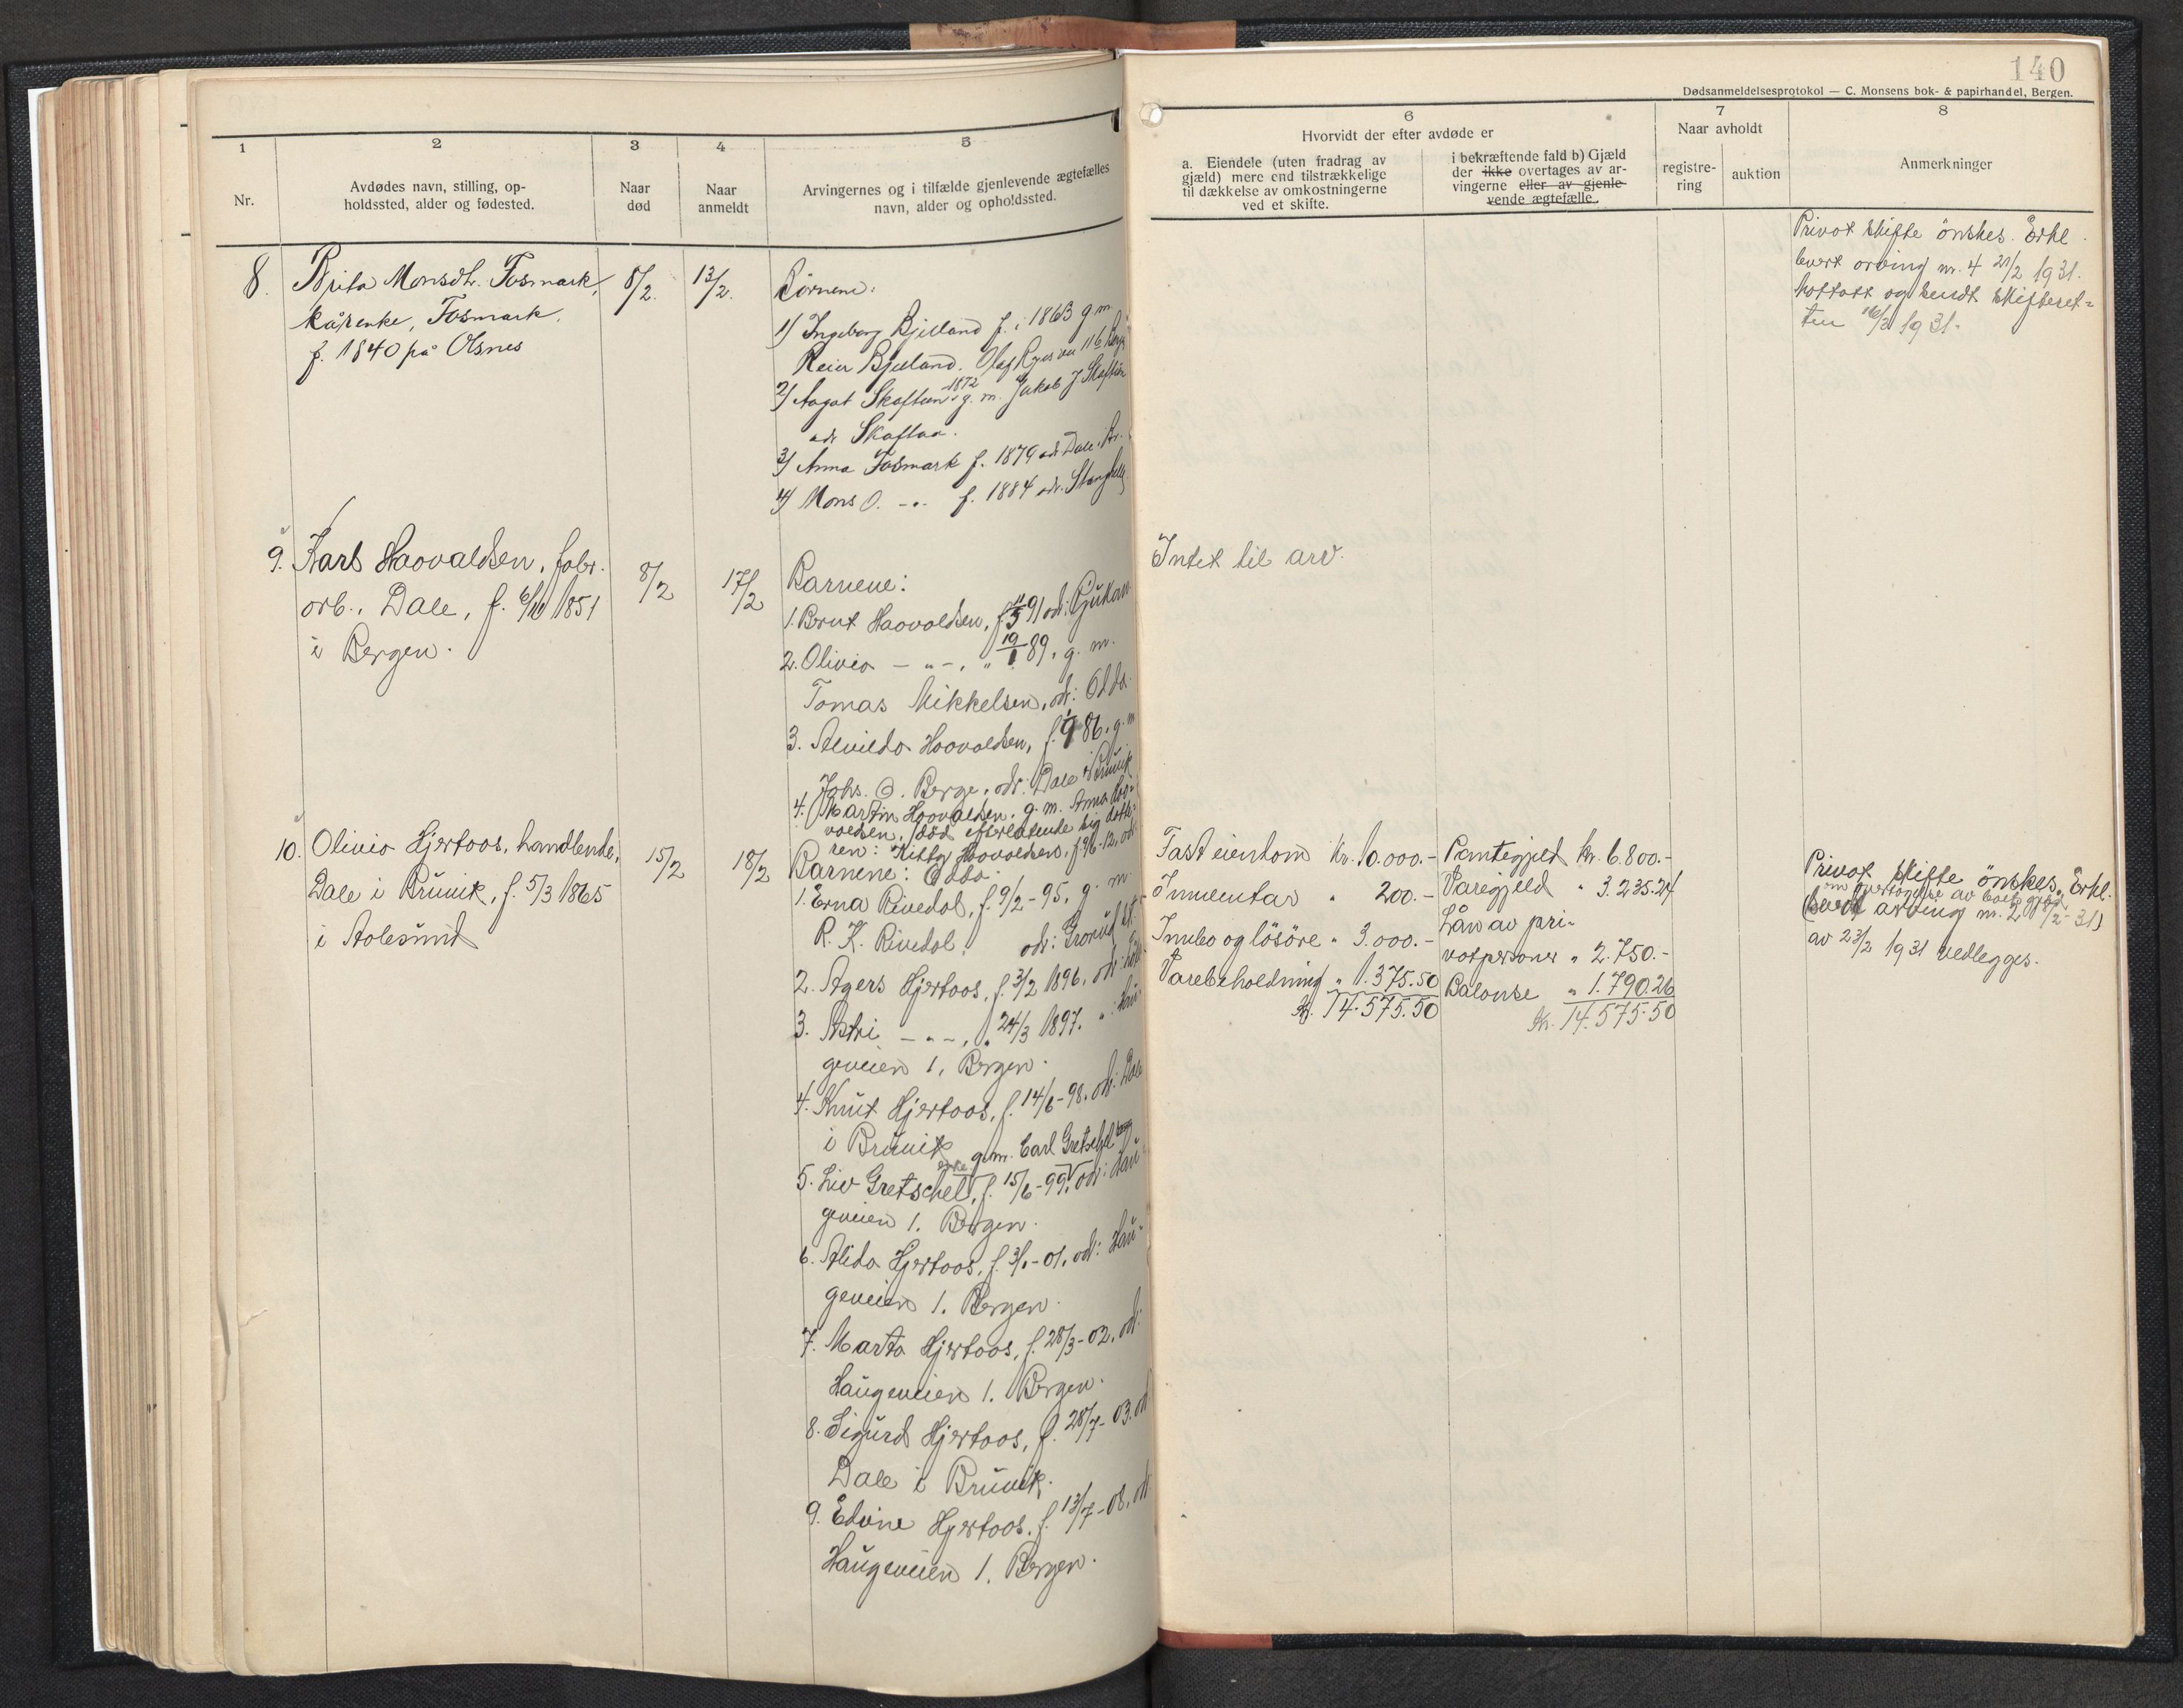 140
Dødsanmeldelsesprotokol — C. Monsens bok- & papirhandel, Bergen.
1
Nr.
2
Avdødes navn, stilling, op-
holdssted, alder og fødested.
3
Naar
død
4
Naar
anmeldt
5
Arvingernes og i tilfælde gjenlevende ægtefælles
navn, alder og opholdssted.
6
Hvorvidt der efter avdøde er
a. Eiendele (uten fradrag av
gjæld) mere end tilstrækkelige
til dækkelse av omkostningerne
ved et skifte.
i bekræftende fald b) Gjæld
der ikke overtages av ar-
vingerne eller av gjenle-
vende ægtefælle.
7
Naar avholdt
registre-
ring
auktion
8
Anmerkninger
8. Brita Monsdt. Fosmark,
kårenke, Fosmark.
f. 1840 på Olsnes
8/2.
13/2.
Børnene:
1) Ingeborg Bjelland f. i 1863 g m
Reier Bjelland. Olaf Ryes vei 116 Berg
2) Aagot Skaftun 1872 g. m. Jakob J Skaftun
adr Skaftaa.
3) Anna Fosmark f. 1879 adr Dale i Br.
4) Mons O. -"- f. 1884 adr. Stanghelle
Privat skifte önskes. Erkl.
levert arving nr. 4 21/2 1931.
Mottatt og sendt skifteret=
ten 26/2 1931.
9. Karl Haavaldsen, fabr.
arb., Dale, f. 6/10 1851
i Bergen.
8/2
17/2
Barnene:
1. Bernt Haavaldsen, f 11/5 91 adr: Rjukan.
2. Olivia -"-, " 19/1 89, g. m.
Tomas Mikkelsen, adr: Odda.
3. Alvilda Haavaldsen, f. 1/9 86, g. m
Johs. O. Berge, adr. Dale i Bruvik
4. Martin Haavaldsen, g. m. Anna Haa-
valdsen, død efterlatende sig datte-
ren: Kitty Haavaldsen, f. 9/6-12, adr
Odda.
Intet til arv.
10. Olivia Hjertaas, handlende,
Dale i Bruvik, f. 5/3 1865
i Aalesund
15/2
18/2
Barnene:
1. Erna Rivedal, f. 9/2-95, g. m
R. K. Rivedal. adr: Grorud st.
2. Agers Hjertaas, f. 3/2 1896, adr:
3. Astri -"-, " 24/3 1897. " : Hau-
geveien 1, Bergen.
4. Knut Hjertaas, f. 14/6-98, adr: Dale
i Bruvik
5. Liv Gretschel, enke g. m. Carl Gretschel f. 15/6-99, adr: Hau-
geveien 1. Bergen.
6. Alida Hjertaas, f. 3/1-01, adr: Hau-
geveien 1. Bergen.
7. Marta Hjertaas, f. 28/3-02, adr:
Haugeveien 1. Bergen.
8. Sigurd Hjertaas, f. 28/7-03. adr
Dale i Bruvik.
9. Edvine Hjertaas. f. 13/7-08, adr
Haugeveien 1. Bergen.
Fast eiendom Kr. 10.000.-
Inventar " 200.-
Innbo og lösöre " 3.000.-
Varebeholdning " 1.375.50
Kr. 14.575.50
Pantegjeld Kr. 6.800.-
Varegjeld " 3.235.24
Lån av pri-
vatpersoner " 2.750.-
Balanse " 1.790.26
Kr. 14.575.50
Privat skifte önskes. Erkl.
om overtagelse av boets gjeld
(levert arving nr. 2 18/2-31)
av 23/2 1931 vedlegges.